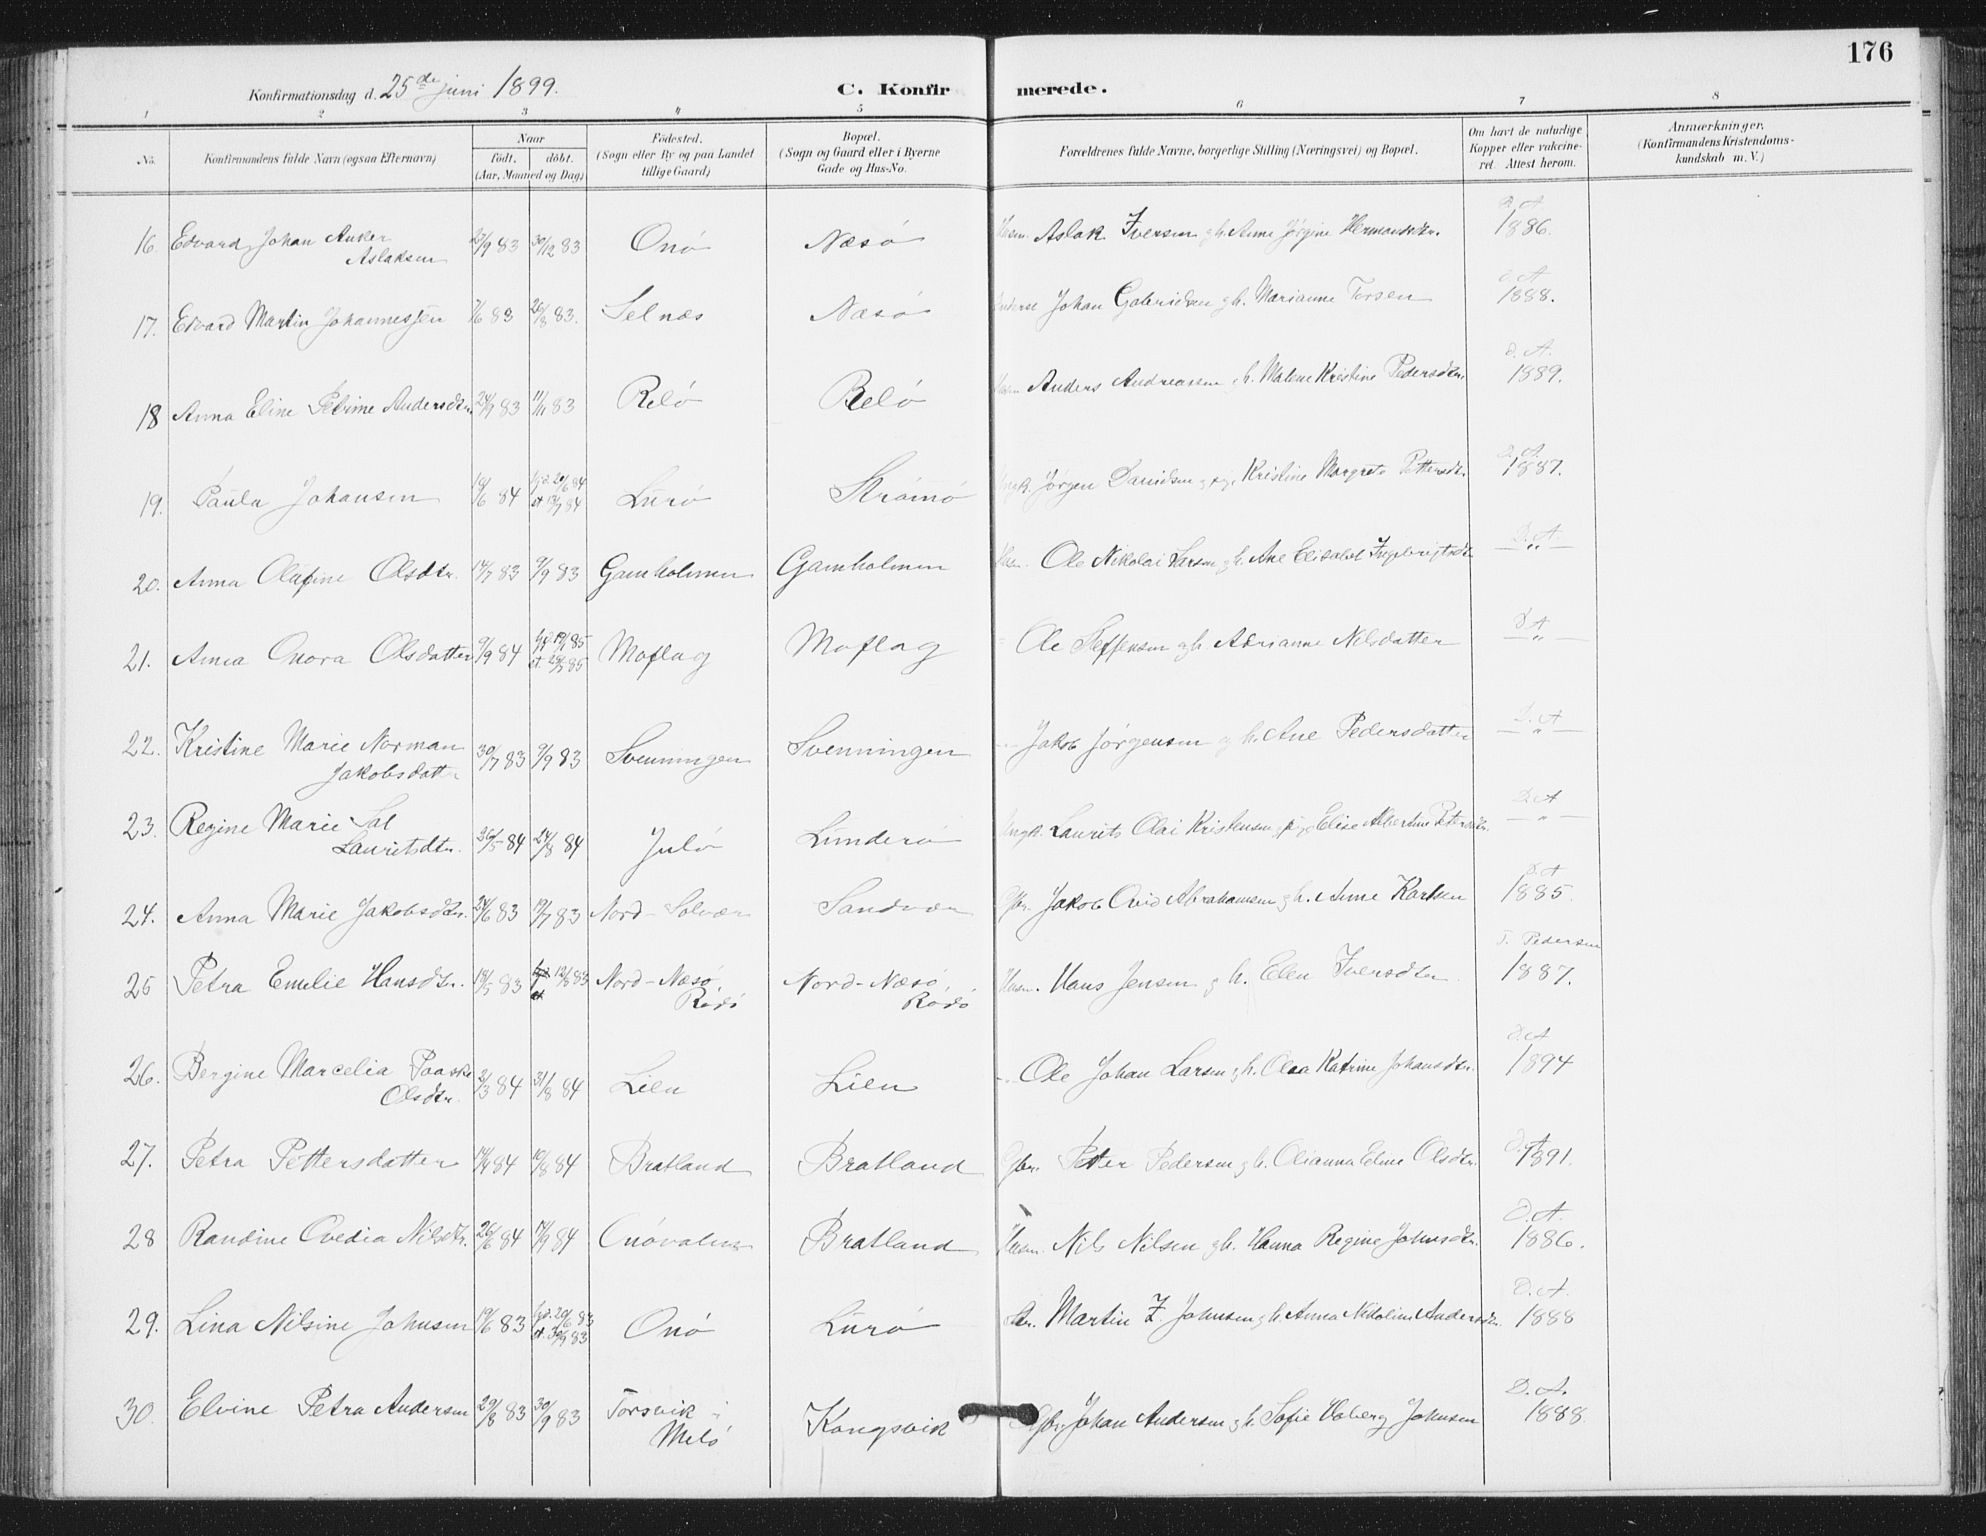 176
Konfirmationsdag d. 25de juni 1899.
C. Konfirmerede.
1 2 3 4 5 6 7 8
No.
Konfirmandens fulde Navn (ogsaa Efternavn)
Naar
födt. döbt.
(Aar, Maaned og Dag)
Födested.
(Sogn eller By og paa Landet
tillige Gaard)
Bopæl.
(Sogn og Gaard eller i Byerne
Gade og Hus-No.
Forældrenes fulde Navne, borgerlige Stilling (Næringsvei) og Bopæl.
Om havt de naturlige
Kopper eller vakcine-
ret. Attest herom.
Anmærkninger.
(Konfirmandens Kristendoms-
kundskab m. V.)
16. Edvard Johan Anker Aslaksen 30/12 83 Onö Næsö Husm. Aslak Iversen gh. Anne Jørgine Hermansdtr. D. A. 1886.
17. Edvard Martin Johannessen 83 26/8 83. Selnæs Næsö Johan Gabrielsen gh. Marianne Torsen D. A. 1888.
18 Anna Eline Petrine Andersdtr. 24/9 83 11/11 83 Relö Relö Husm Anders Andreassen gh. Malene Kristine Pedersdtr. D. A. 1889.
19. Paula Johansen 18/6 84 hjd. 20/6 84 st. 13/7 84 Lurö Strömö Ungk. Jørgen Danielsen og pige Kristine Margrete Pettersdtr D. A. 1887.
20. Anna Olufine Olsdtr. 14/7 83 9/9 83 Gamholmen Gamholmen Husm. Ole Nikolai Larsen gh. Ane Elisabet Ingebrigtsdtr D. A. — „ —
21. Anna Onora Olsdatter 9/9 84 hjd 19/1 85 st. 85 Moflag Moflag Ole Steffensen gh. Adrianne Nilsdatter D. A — „ —
22. Kristine Marie Norman Jakobsdatter 30/7 83 9/9 83 Svenningen Svenningen Jakob Jørgensen gh. Ane Pedersdatter D. A — „ —
23. Regine Marie Sal Lauritsdtr. 26/5 84 24/8 84 Julö Lunderö Ungk. Laurits Olai Kristensen og pige Elise Albertine Petersdtr. D. A — „ —
24. Anna Marie Jakobsdtr. 24/6 83 19/7 83 Nord-Solvær Sandvær Gbr. Jakob Ovid Abrahamsen gh. Anne Karlsen D. A 1885.
25 Petra Emelie Hansdtr. 18/5 83 hjd 12/8 83 st Nord-Næsö, Rödö Nord-Næsö, Rödö Husm. Hans Jensen gh. Elen Iversdtr. T. Pedersen 1887.
26. Bergine Marcelia Paaske Olsdtr. 2/3 84 31/8 84 Lien Lien Ole Johan Larsen gh. Olea Katrine Johansdtr. D. A 1894
27. Petra Pettersdatter 84 10/8 84 Bratland Bratland Gbr. Peter Pedersen gh. Olianna Eline Olsdtr. D. A 1891.
28 Randine Ovedia Nilsdtr. 26/6 84 84 Onövalen Bratland Husm. Nils Nilsen gh. Hanna Regine Johnsdtr. D. A. 1886.
29. Lina Nilsine Johnsen 19/6 83 hjd. 20/6 83 st. 30/9 83 Onö Lurö Martin Z. Johnsen gh. Anna Nikoline Andersdtr. D. A. 1888
30. Elvine Petra Andersen 29/8 83 30/9 83 Torsvik i Melö Kongsvik Gbr. Johan Andersen gh. Sofie Hoberg Johnsen D. A. 1888.